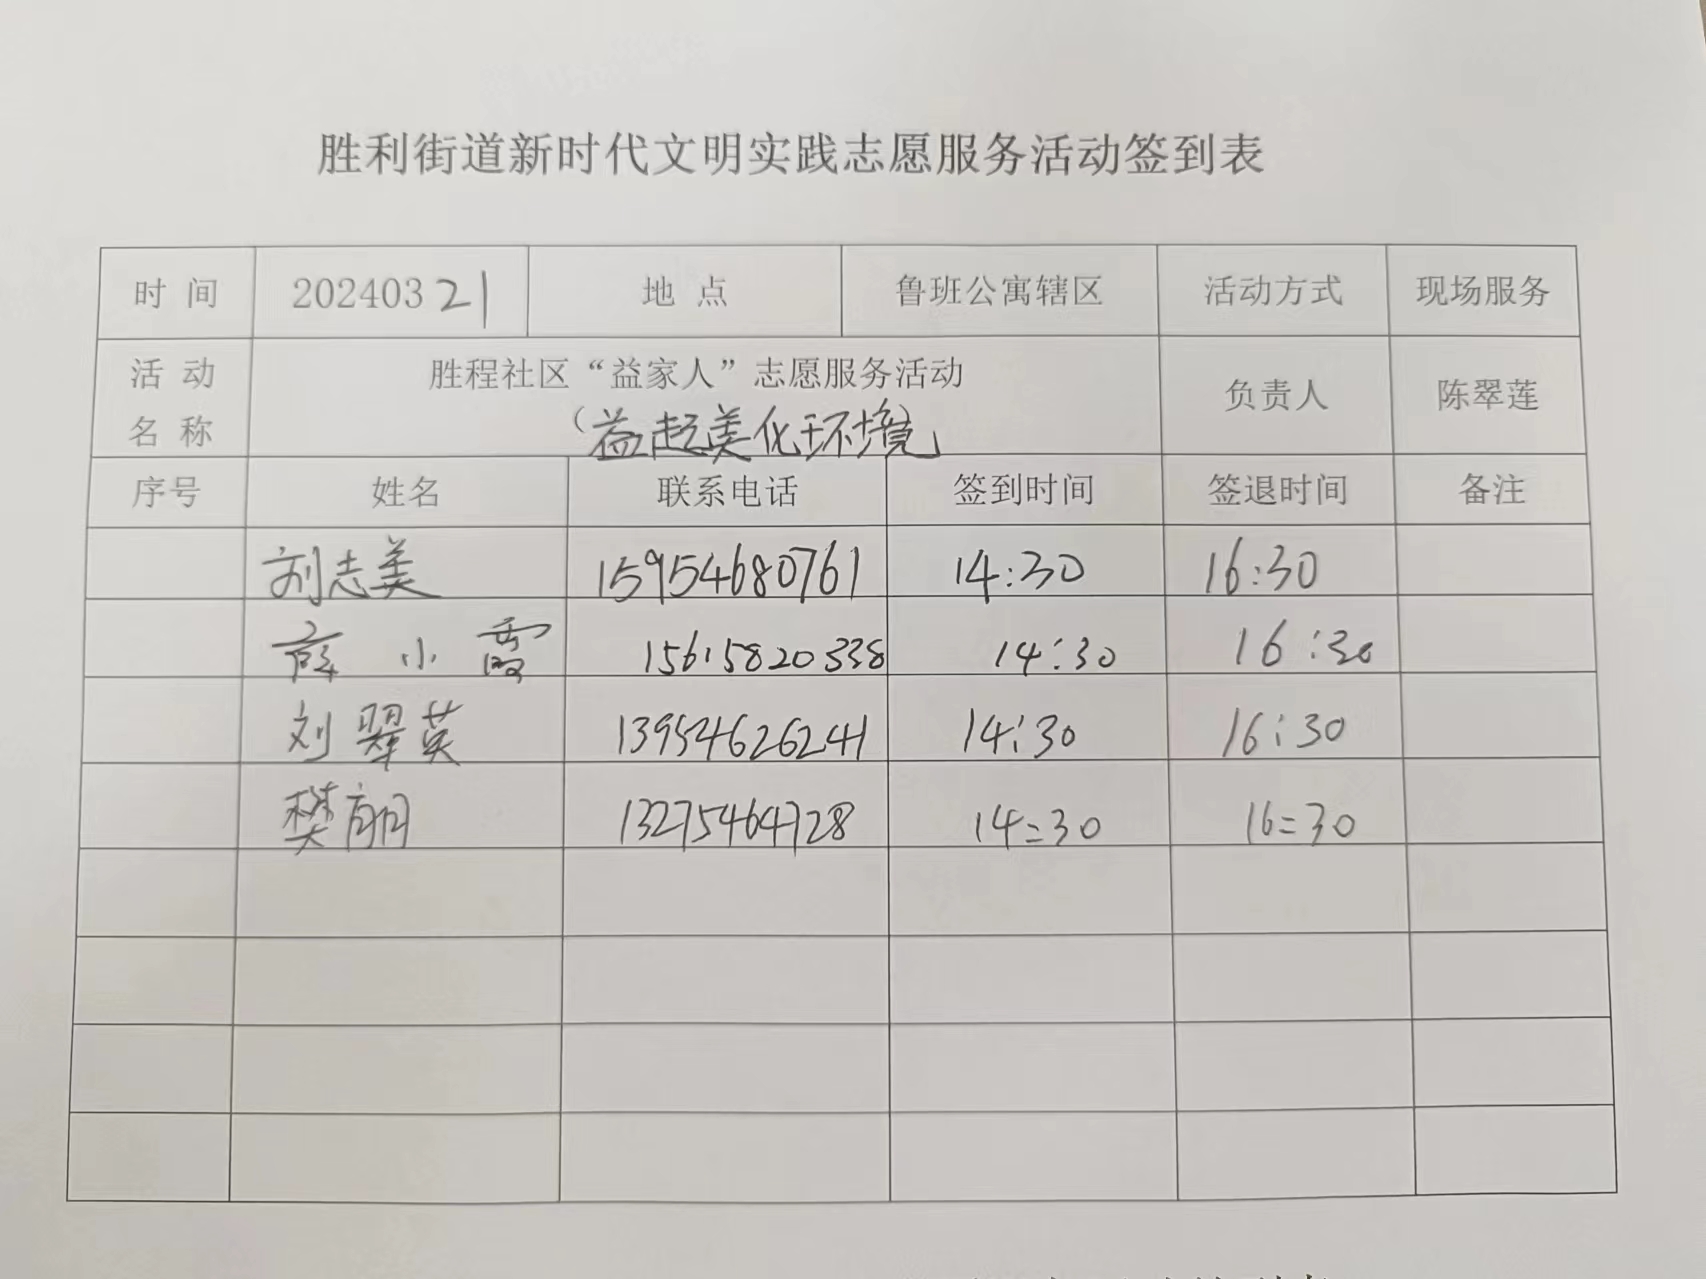 胜利街道新时代文明实践志愿服务活动签到表
时 间 20240321 地 点 鲁班公寓辖区 活动方式 现场服务
活 动 名 称 胜程社区“益家人”志愿服务活动 负责人 陈翠莲
（益起美化环境）
序号 姓名 联系电话 签到时间 签退时间 备注
刘志美 15954680761 14:30 16:30
薛小霞 15615820338 14:30 16:30
刘翠英 13954626241 14:30 16:30
樊朋 13275464728 14:30 16:30